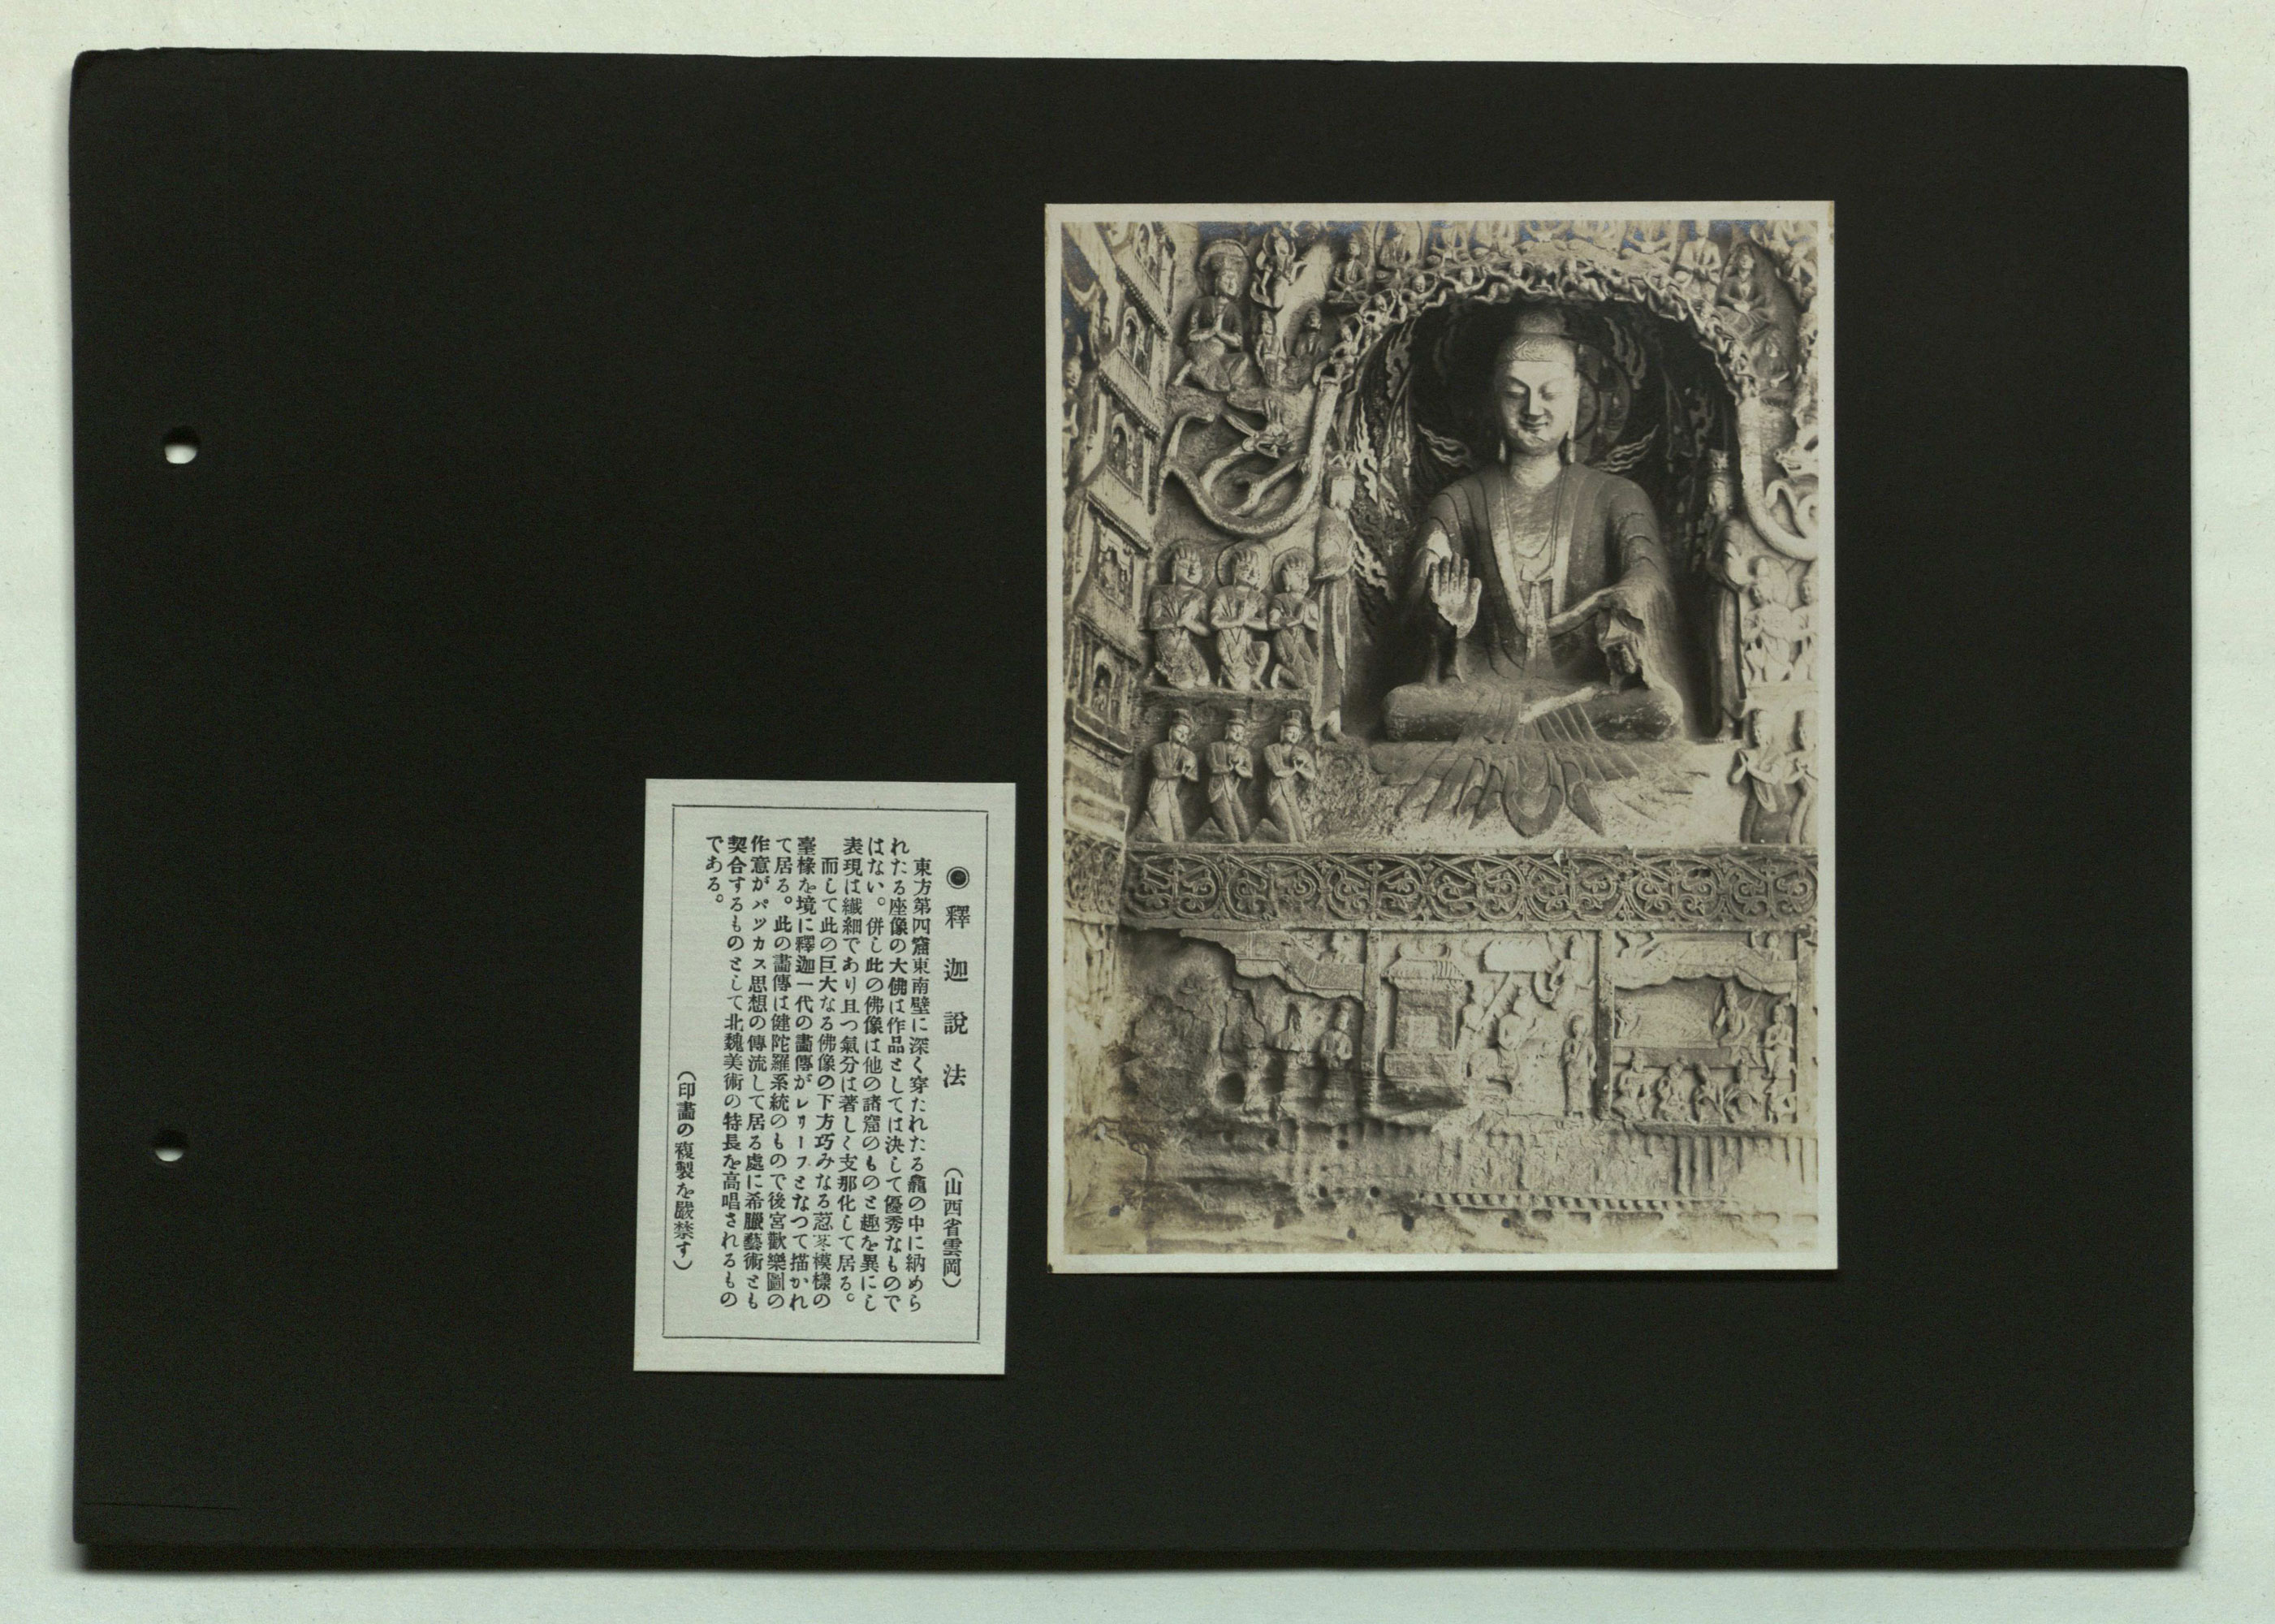 ◉釋迦說法 (山西省雲岡)
東方第四窟東南壁に深く穿たれたる龕の中に納めら
れたる座像の大佛は作品としては決して優秀なもので
はない。併し此の佛像は他の諸窟のものと趣を異にし
表現は纖細であり且つ氣分は著しく支那化して居る。
而して此の巨大なる佛像の下方巧みなる忍冬模樣の
臺椽を境に釋迦一代の畵傳がレリーフとなつて描かれ
て居る。此の畵傳は健陀羅系統のもので後宮歡樂圖の
作意がバツカス思想の傳流して居る處に希臘藝術とも
契合するものとして北魏美術の特長を高唱されるもの
である。
(印畵の複製を嚴禁す)